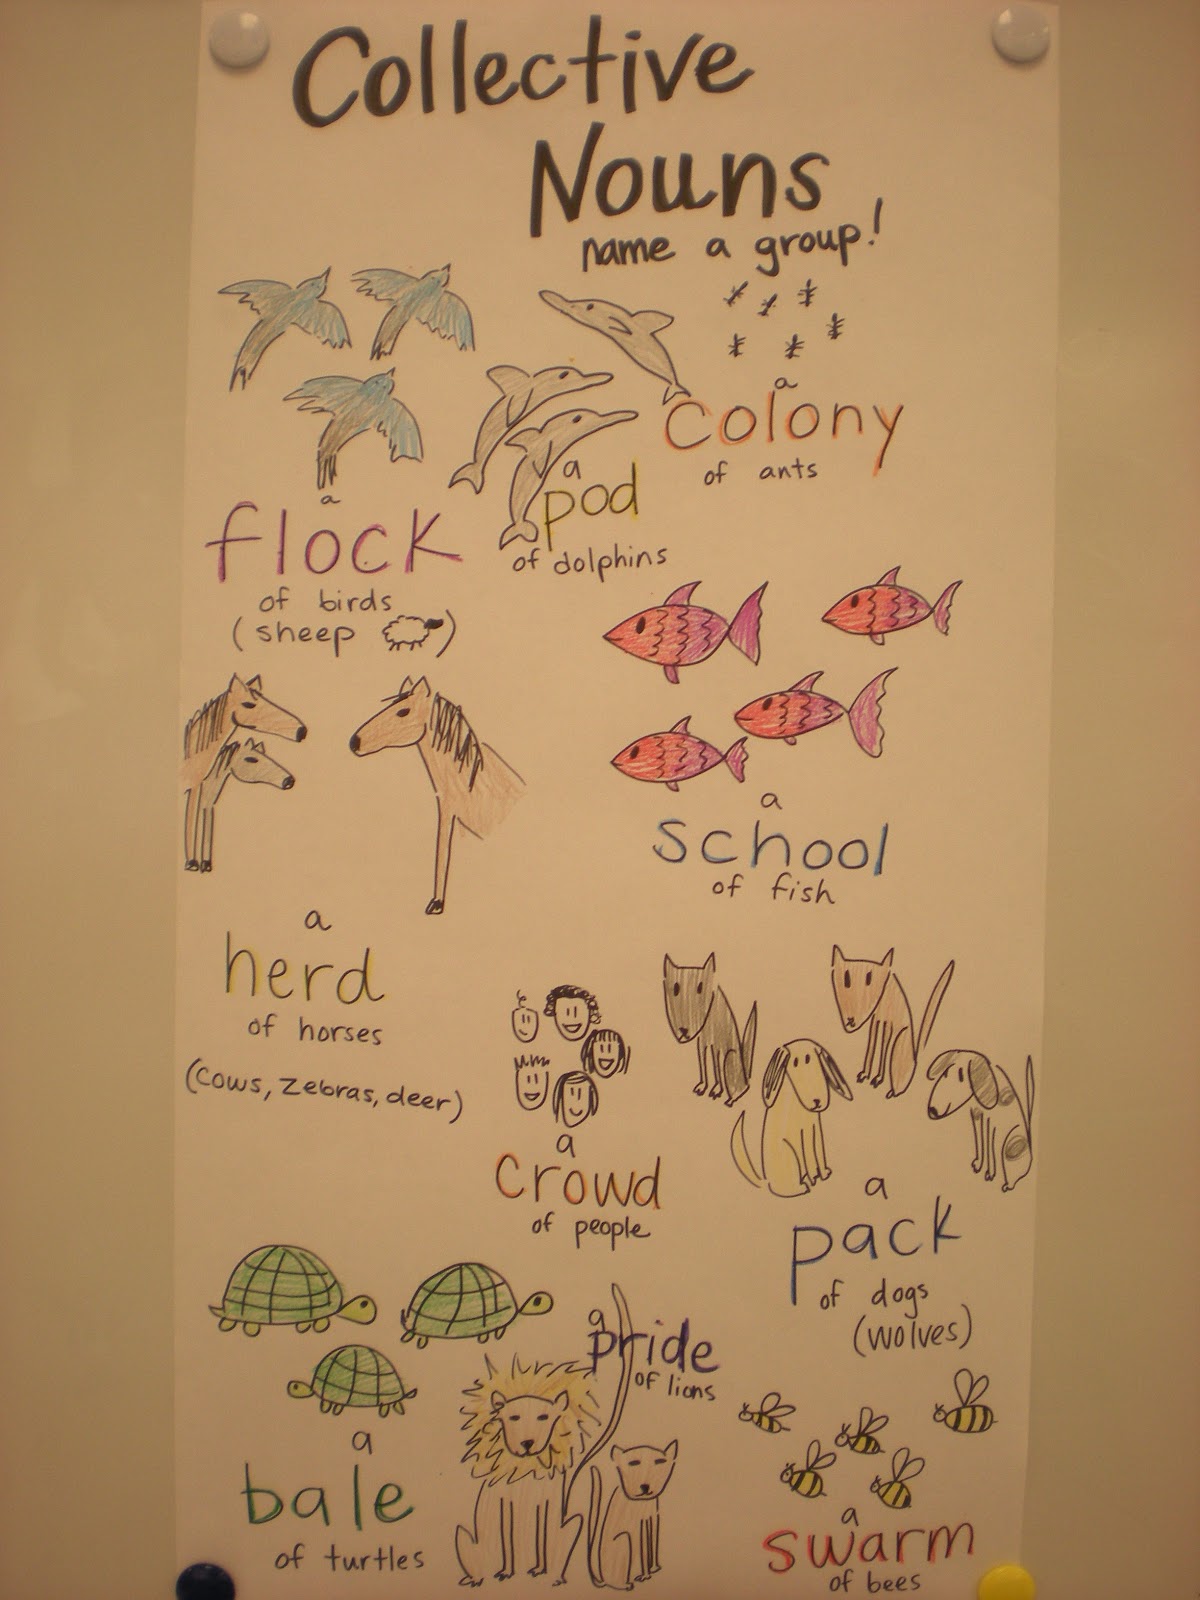 Collective
Nouns
name a group!
a
colony
of ants
a
pod
of dolphins
a
flock
of birds
(sheep )
a
school
of fish
a
herd
of horses
(cows, zebras, deer)
a
crowd
of people
a
pack
of dogs
(wolves)
a
pride
of lions
a
bale
of turtles
a
swarm
of bees